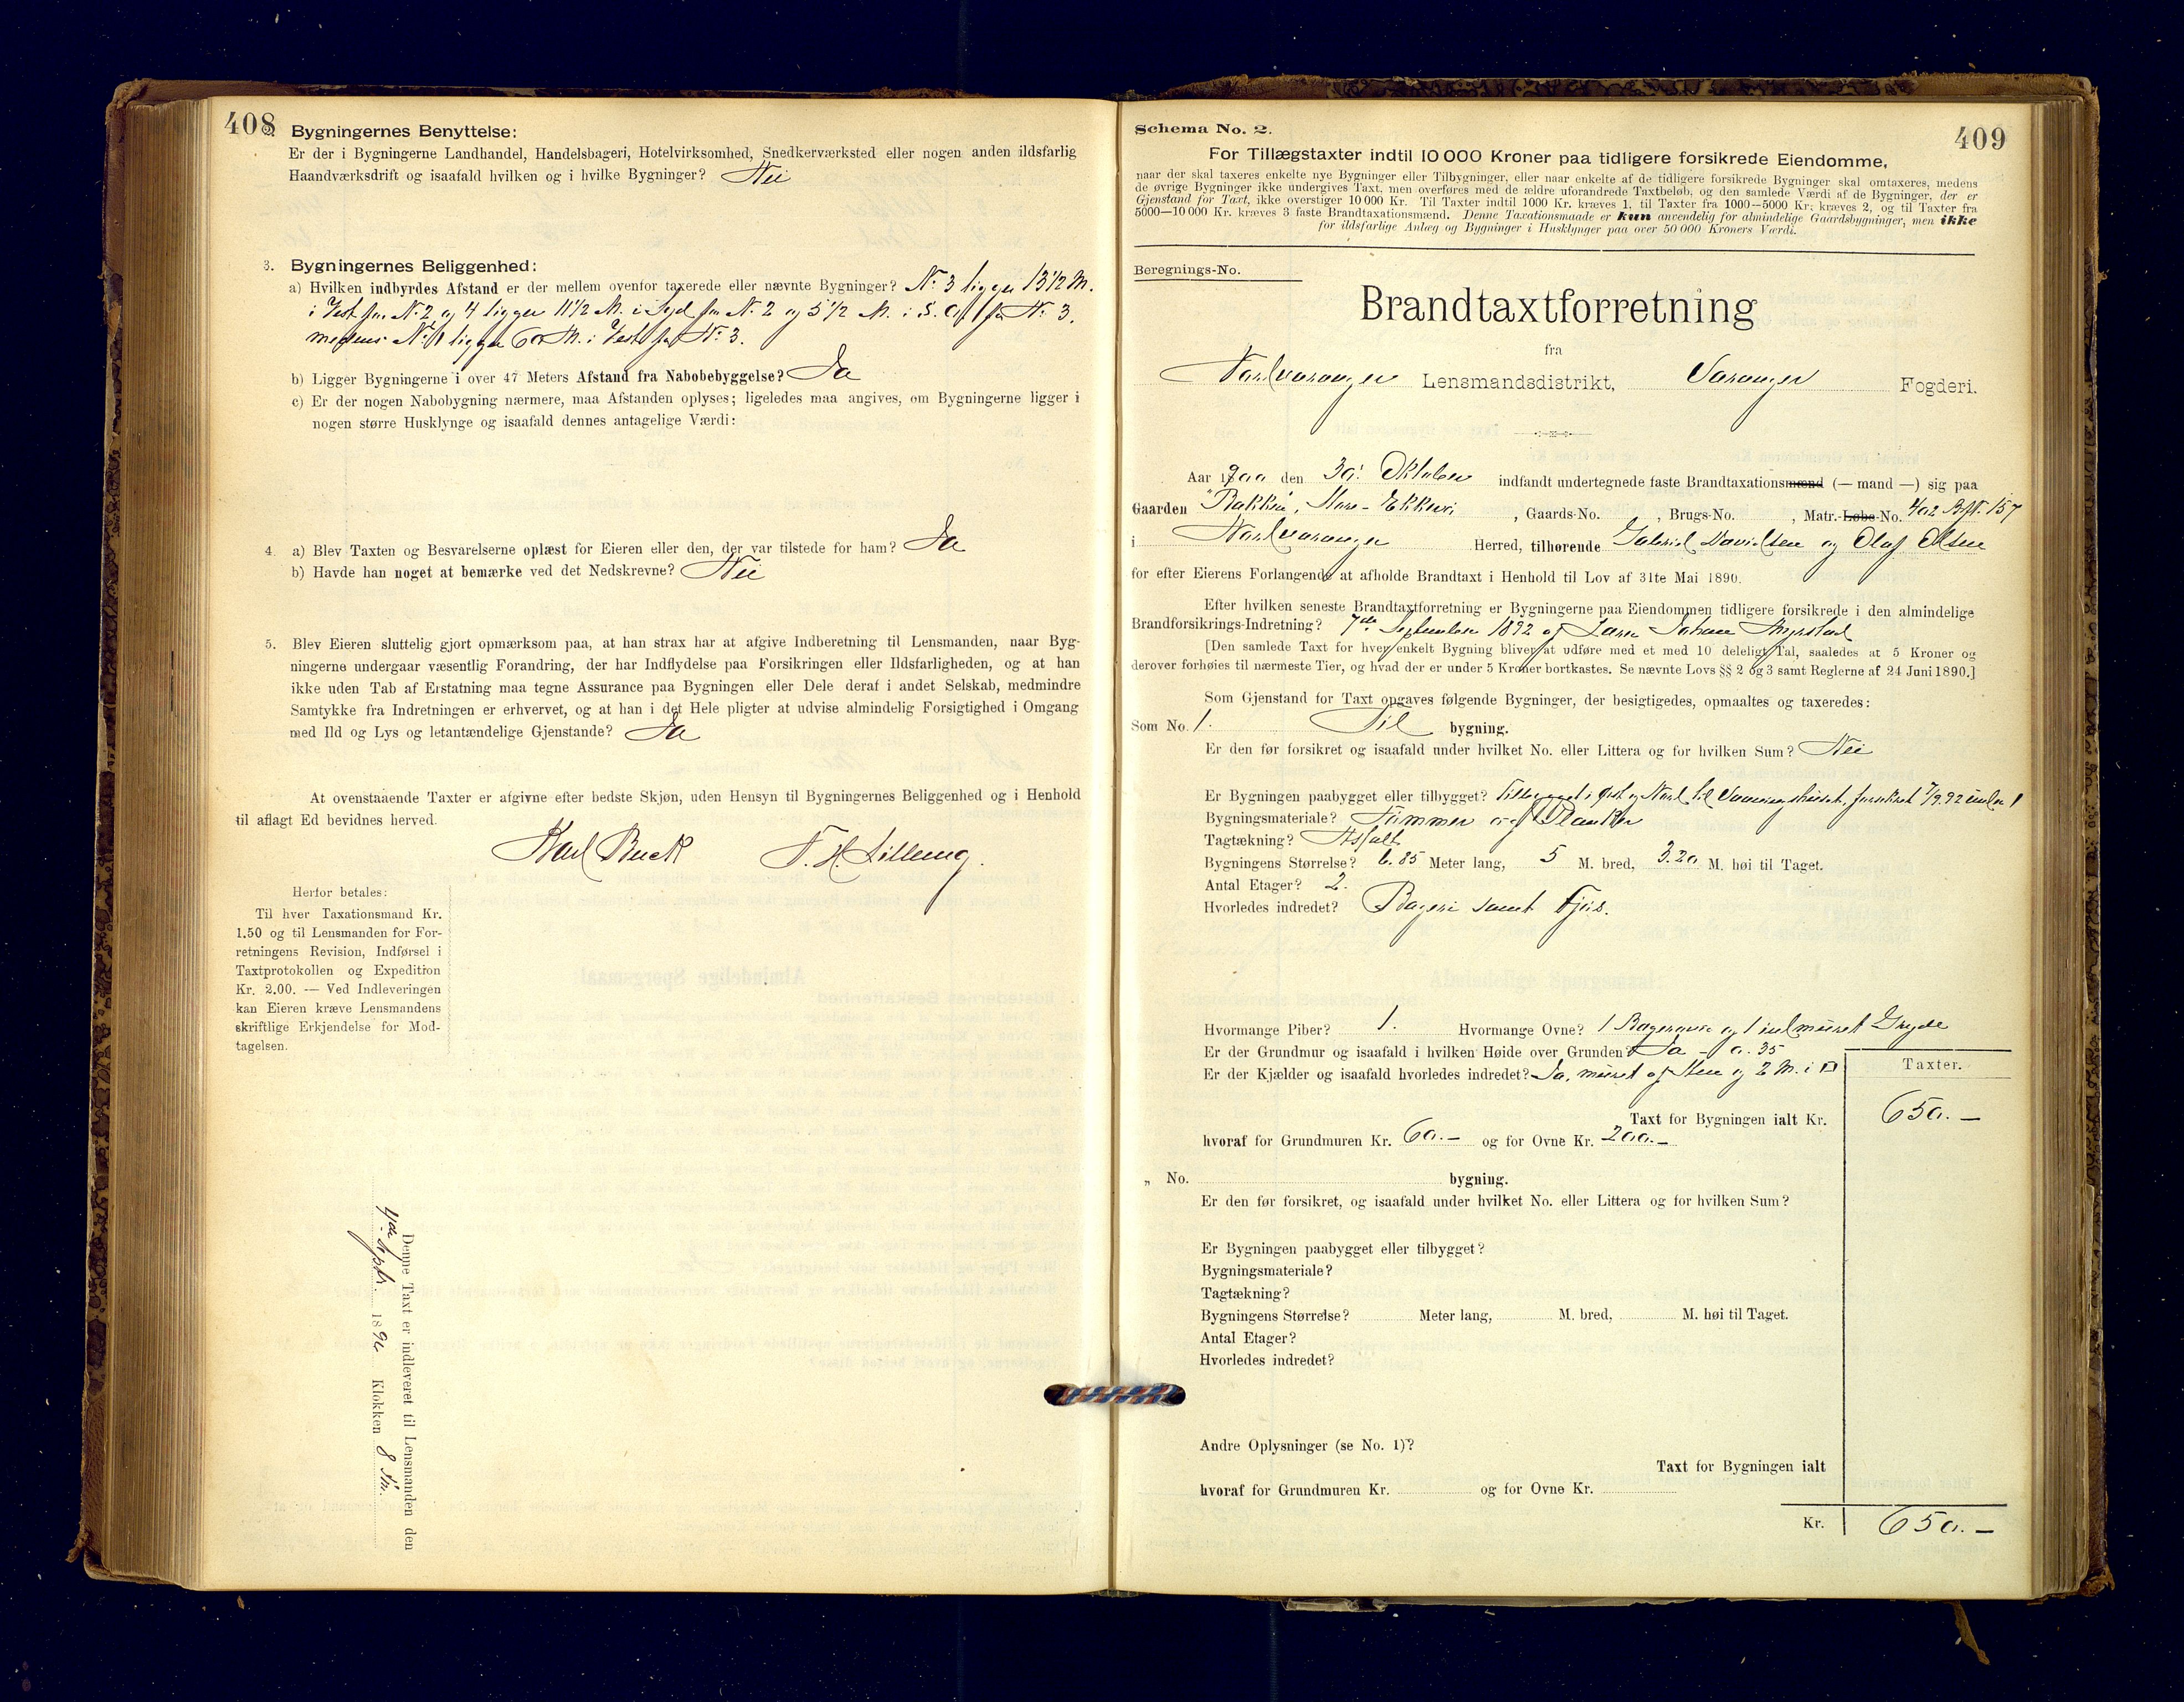 408
2. Bygningernes Benyttelse:
Er der i Bygningerne Landhandel, Handelsbageri, Hotelvirksomhed, Snedkerværksted eller nogen anden ildsfarlig
Haandværksdrift og isaafald hvilken og i hvilke Bygninger? Nei
3. Bygningernes Beliggenhed:
a) Hvilken indbyrdes Afstand er der mellem ovenfor taxerede eller nævnte Bygninger? No 3 ligger 13 1/2 M.
i Vest fra No 2 og 4 ligger 11 1/2 M. i Syd fra No 2 og 5 1/2 M. i S. O. fra No 3.
medens No 1 ligger 60 M. i Vest fra No 3.
b) Ligger Bygningerne i over 47 Meters Afstand fra Nabobebyggelse? Ja
c) Er der nogen Nabobygning nærmere, maa Afstanden oplyses; ligeledes maa angives, om Bygningerne ligger i
nogen større Husklynge og isaafald dennes antagelige Værdi:
4. a) Blev Taxten og Besvarelserne oplæst for Eieren eller den, der var tilstede for ham? Ja
b) Havde han noget at bemærke ved det Nedskrevne? Nei
5. Blev Eieren sluttelig gjort opmærksom paa, at han strax har at afgive Indberetning til Lensmanden, naar Byg-
ningerne undergaar væsentlig Forandring, der har Indflydelse paa Forsikringen eller Ildsfarligheden, og at han
ikke uden Tab af Erstatning maa tegne Assurance paa Bygningen eller Dele deraf i andet Selskab, medmindre
Samtykke fra Indretningen er erhvervet, og at han i det Hele pligter at udvise almindelig Forsigtighed i Omgang
med Ild og Lys og letantændelige Gjenstande? Ja
At ovenstaaende Taxter er afgivne efter bedste Skjøn, uden Hensyn til Bygningernes Beliggenhed og i Henhold
til aflagt Ed bevidnes herved.
Karl Buck
Herfor betales:
Til hver Taxationsmand Kr.
1.50 og til Lensmanden for For-
retningens Revision, Indførsel i
Taxtprotokollen og Expedition
Kr. 2.00. — Ved Indleveringen
kan Eieren kræve Lensmandens
skriftlige Erkjendelse for Mod-
tagelsen.
Denne Taxt er indleveret til Lensmanden den
Septr. 189 Klokken 8
409
Schema No. 2.
For Tillægstaxter indtil 10 000 Kroner paa tidligere forsikrede Eiendomme,
naar der skal taxeres enkelte nye Bygninger eller Tilbygninger, eller naar enkelte af de tidligere forsikrede Bygninger skal omtaxeres, medens
de øvrige Bygninger ikke undergives Taxt, men overføres med de ældre uforandrede Taxtbeløb, og den samlede Værdi af de Bygninger, der er
Gjenstand for Taxt, ikke overstiger 10 000 Kr. Til Taxter indtil 1000 Kr. kræves 1, til Taxter fra 1000—5000 Kr. kræves 2, og til Taxter fra
5000—10 000 Kr. kræves 3 faste Brandtaxationsmænd. Denne Taxationsmaade er kun anvendelig for almindelige Gaardsbygninger, men ikke
for ildsfarlige Anlæg og Bygninger i Husklynger paa over 50 000 Kroners Værdi.
Beregnings-No.
Brandtaxtforretning
fra
Nordvaranger Lensmandsdistrikt, Varanger Fogderi.
Aar 1900 den 30. Oktober indfandt undertegnede faste Brandtaxationsmænd (— mand —) sig paa
Gaarden "Bakken", Store-Ekkerø, Gaards-No. , Brugs-No. , Matr.-Løbe-No. 402 157
i Nordvaranger Herred, tilhørende Gabriel Davidsen og Olaf Olsen
for efter Eierens Forlangende at afholde Brandtaxt i Henhold til Lov af 31te Mai 1890.
Efter hvilken seneste Brandtaxtforretning er Bygningerne paa Eiendommen tidligere forsikrede i den almindelige
Brandforsikrings-Indretning? 7de September 1892 af Johan
[Den samlede Taxt for hver enkelt Bygning bliver at udføre med et med 10 deleligt Tal, saaledes at 5 Kroner og
derover forhøies til nærmeste Tier, og hvad der er under 5 Kroner bortkastes. Se nævnte Lovs §§ 2 og 3 samt Reglerne af 24 Juni 1890.]
Som Gjenstand for Taxt opgaves følgende Bygninger, der besigtigedes, opmaaltes og taxeredes:
Som No. 1. Til bygning.
Er den før forsikret og isaafald under hvilket No. eller Littera og for hvilken Sum? Nei
Er Bygningen paabygget eller tilbygget? Tilbygget i Øst og Nord til Vaaningshuset, forsikret 7/9.92 under 1
Bygningsmateriale? Tømmer og Planker
Tagtækning? Asfalt
Bygningens Størrelse? 6.85 Meter lang, 5 M. bred, 3.20 M. høi til Taget.
Antal Etager? 2.
Hvorledes indredet? Bageri samt Fjøs.
Hvormange Piber? 1. Hvormange Ovne? 1 Bagerovn og 1 indmuret Gryde
Er der Grundmur og isaafald i hvilken Høide over Grunden? Ja - 0.35
Er der Kjælder og isaafald hvorledes indredet? Ja, muret af Sten og 2 M. i □
Taxter.
Taxt for Bygningen ialt Kr. 650.—
hvoraf for Grundmuren Kr. 60.— og for Ovne Kr. 200.—
„ No. bygning.
Er den før forsikret, og isaafald under hvilket No. eller Littera og for hvilken Sum?
Er Bygningen paabygget eller tilbygget?
Bygningsmateriale?
Tagtækning?
Bygningens Størrelse? Meter lang, M. bred, M. høi til Taget.
Antal Etager?
Hvorledes indredet?
Andre Oplysninger (se No. 1)?
Taxt for Bygningen ialt
hvoraf for Grundmuren Kr. og for Ovne Kr.
Kr. 650.—